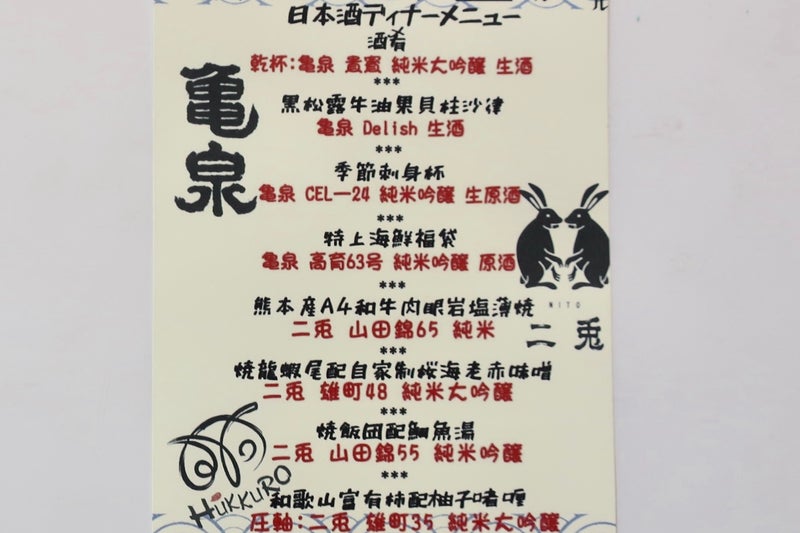 日本酒ディナーメニュー
酒肴
乾杯:亀泉 貴賓 純米大吟醸 生酒
***
黑松露牛油果貝柱沙律
亀泉 Delish 生酒
***
季節刺身杯
亀泉 CEL-24 純米吟醸 生原酒
***
特上海鮮福袋
亀泉 高育63号 純米吟醸 原酒
***
熊本産A4和牛肉眼岩塩薄焼
二兎 山田錦65 純米
***
焼龍蝦尾配自家制桜海老赤味噌
二兎 雄町48 純米大吟醸
***
焼飯団配鯛魚湯
二兎 山田錦55 純米吟醸
***
和歌山富有柿配柚子啫喱
圧軸:二兎 雄町35 純米大吟醸
亀泉
NITO
二兎
HUKKURO